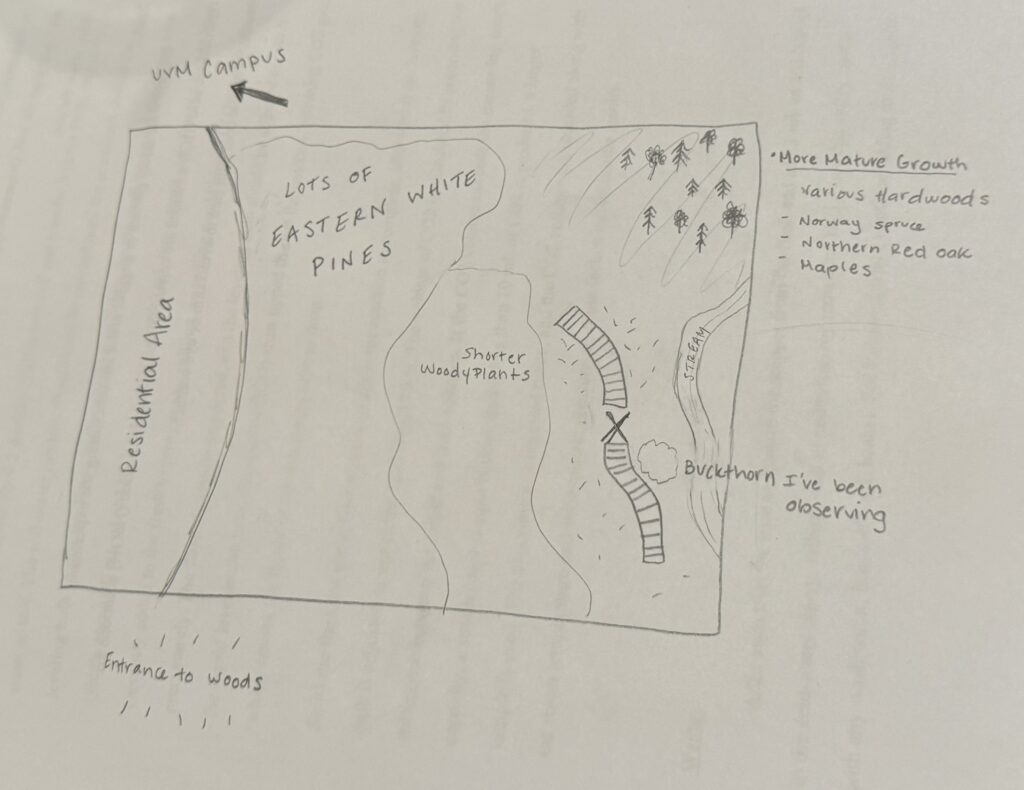 UVM Campus
LOTS OF
EASTERN WHITE
PINES
• More Mature Growth
Various Hardwoods
- Norway spruce
- Northern Red Oak
- Maples
Residential Area
Shorter
Woody Plants
STREAM
X
Buckthorn I've been
observing
Entrance to woods